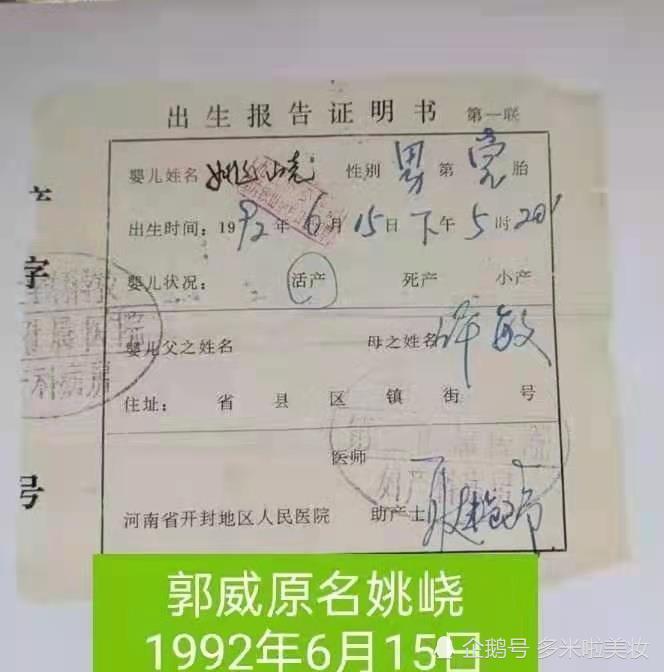 出生报告证明书 第一联
婴儿姓名 姚峣 性别 男 第 壹 胎
出生时间：1992年6月15日下午5时20'
婴儿状况： 活产 死产 小产
婴儿父之姓名 母之姓名 许敏
住址： 省 县 区 镇 街 号
医师
河南省开封地区人民医院 助产士
字
号
郭威原名姚峣
1992年6月15日
企鹅号 多米啦美妆